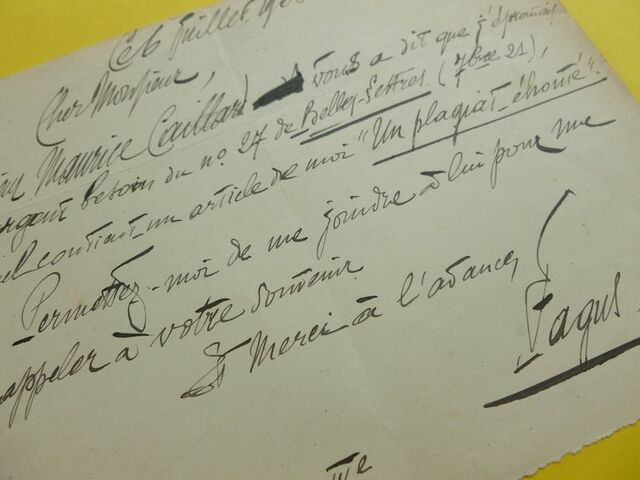 Ce 6 Juillet 19
Cher Monsieur,
Maurice Caillard vous a dit que j'éprouvais
urgent besoin du no. 27 de Belles-Lettres (7bre 21),
el contient un article de moi "Un plagiat éhonté".
Permettez-moi de me joindre à lui pour me
appeler à votre souvenir
Et Merci à l'avance,
Fagus
IIIe